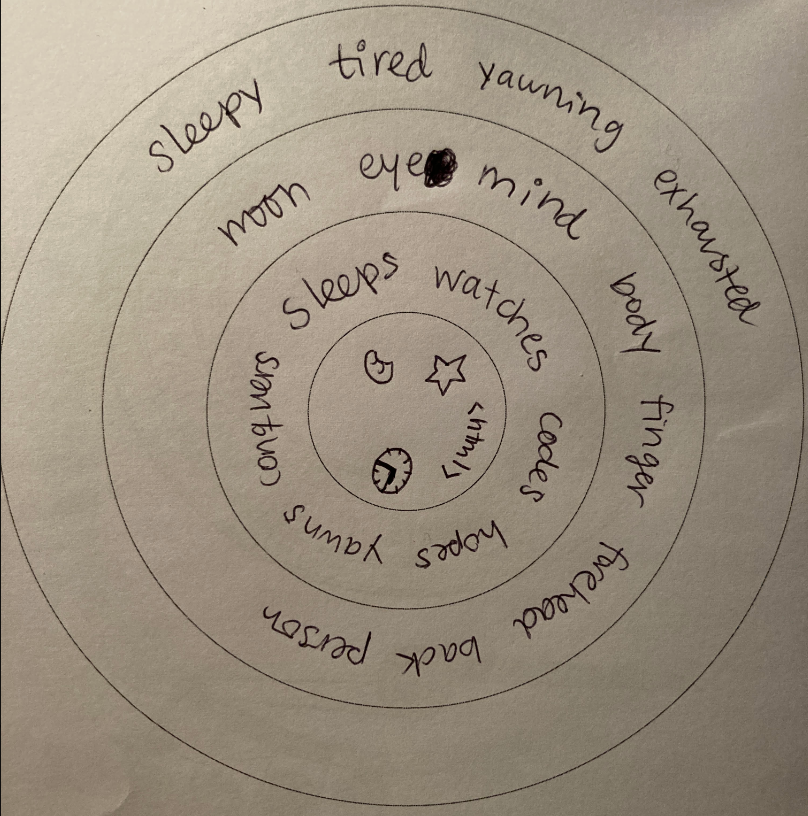 sleepy tired yawning exhausted
moon eye mind body finger forehead back person
sleeps watches codes hopes yawns conquers
<html>